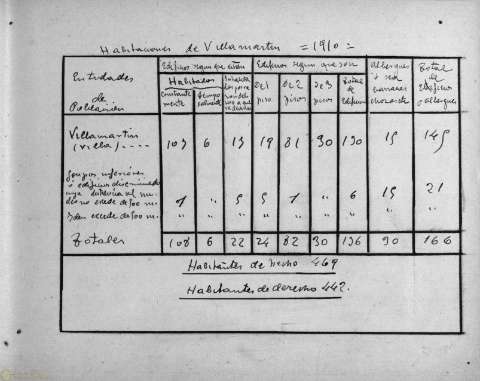 Habitaciones de Villamartin = 1910 =
Entidades de Población
Edificios segun que estén
Edificios segun que son
Albergues o sea barracas chozas etc
Total de Edificios y albergues
Habitados
Constantemente
Temporalmente
De 1 piso
De 2 pisos
De 3 pisos
Total de Edificios
Villamartin (Villa) ---- 6 19 81 30 130 15 145
Grupos inferiores
o edificios diseminados
cuya distancia al nu-
cleo no excede de 500 m. 1 " 5 5 1 " 6 15 21
Idem excede de 500 m. " " " " " " " " "
Totales 108 6 22 24 82 30 136 30 166
Habitantes de hecho 469
Habitantes de derecho 442.